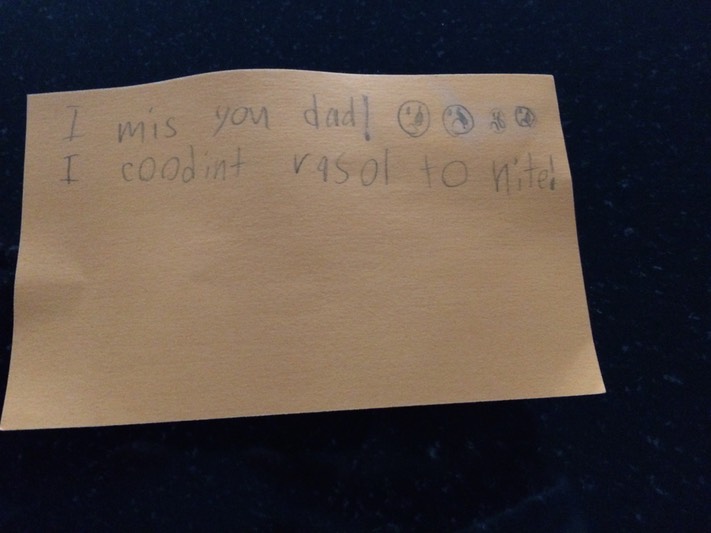 I mis you dad!
I coodint rasol to nite!